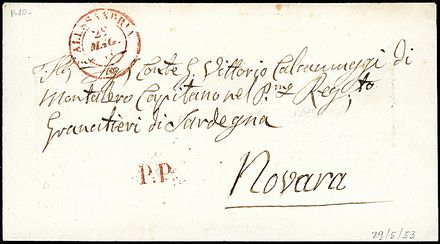 P.20-
ALESSANDRIA
29
MAG.
Conte S. Vittorio Calcamuggi di
Montalero Capitano nel P.mo Reg.to
Granatieri di Sardegna
P.P.
Novara
29/5/53